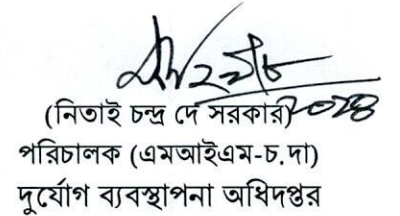 (নিতাই চন্দ্র দে সরকার)
পরিচালক (এমআইএম-চ.দা)
দুর্যোগ ব্যবস্থাপনা অধিদপ্তর